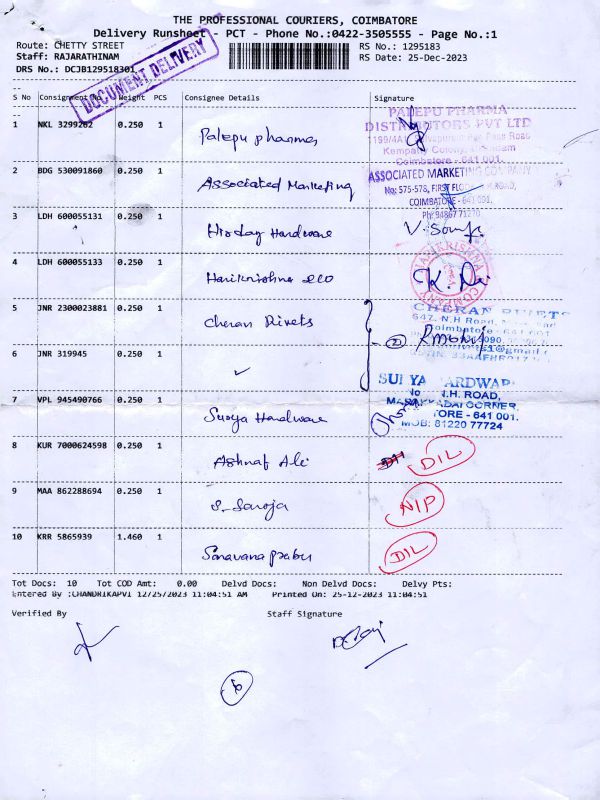 THE PROFESSIONAL COURIERS, COIMBATORE
Delivery Runsheet - PCT - Phone No.:0422-3505555 - Page No.:1
Route: CHETTY STREET
RS No.: 1295183
Staff: RAJARATHINAM
RS Date: 25-Dec-2023
DRS No.: DCJB129518301
DOCUMENT DELIVERY
S No Consignment No Weight PCS Consignee Details Signature
1 NKL 3299262 0.250 1 Palepu pharma
PALEPU PHARMA
DISTRIBUTORS PVT LTD
Coimbatore - 641 001.
2 BDG 530091860 0.250 1 Associated Marketing
ASSOCIATED MARKETING COMPANY
No: 575-578, FIRST FLOOR, ROAD,
COIMBATORE - 641 001.
Ph: 94867 71270
3 LDH 600055131 0.250 1 Hardware
4 LDH 600055133 0.250 1 Harikrishna
COMPANY
5 JNR 2300023881 0.250 1 Cheran Rivets
CHERAN RIVETS
647, N.H Road,
Coimbatore - 641 001
6 JNR 319945 0.250 1 ✓
2
7 VPL 945490766 0.250 1 Surya Hardware
SURYA HARDWARE
No N.H. ROAD,
CORNER,
TORE - 641 001.
MOB: 81220 77724
8 KUR 7000624598 0.250 1 Ashraf Ali DIL
9 MAA 862288694 0.250 1 S. Saroja NIP
10 KRR 5865939 1.460 1 Saravana prabu DIL
Tot Docs: 10 Tot COD Amt: 0.00 Delvd Docs: Non Delvd Docs: Delvy Pts:
Entered By :CHANDRIKAPVI 12/25/2023 11:04:51 AM Printed On: 25-12-2023 11:04:51
Verified By Staff Signature